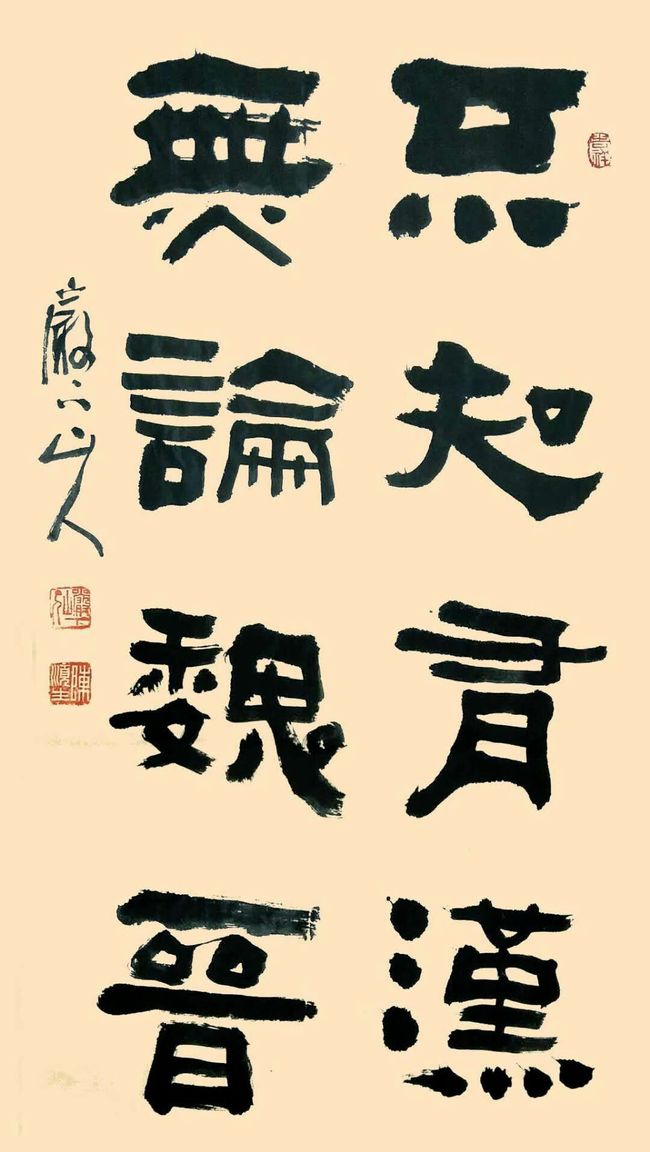 不知有漢
無論魏晉
嚴下山人